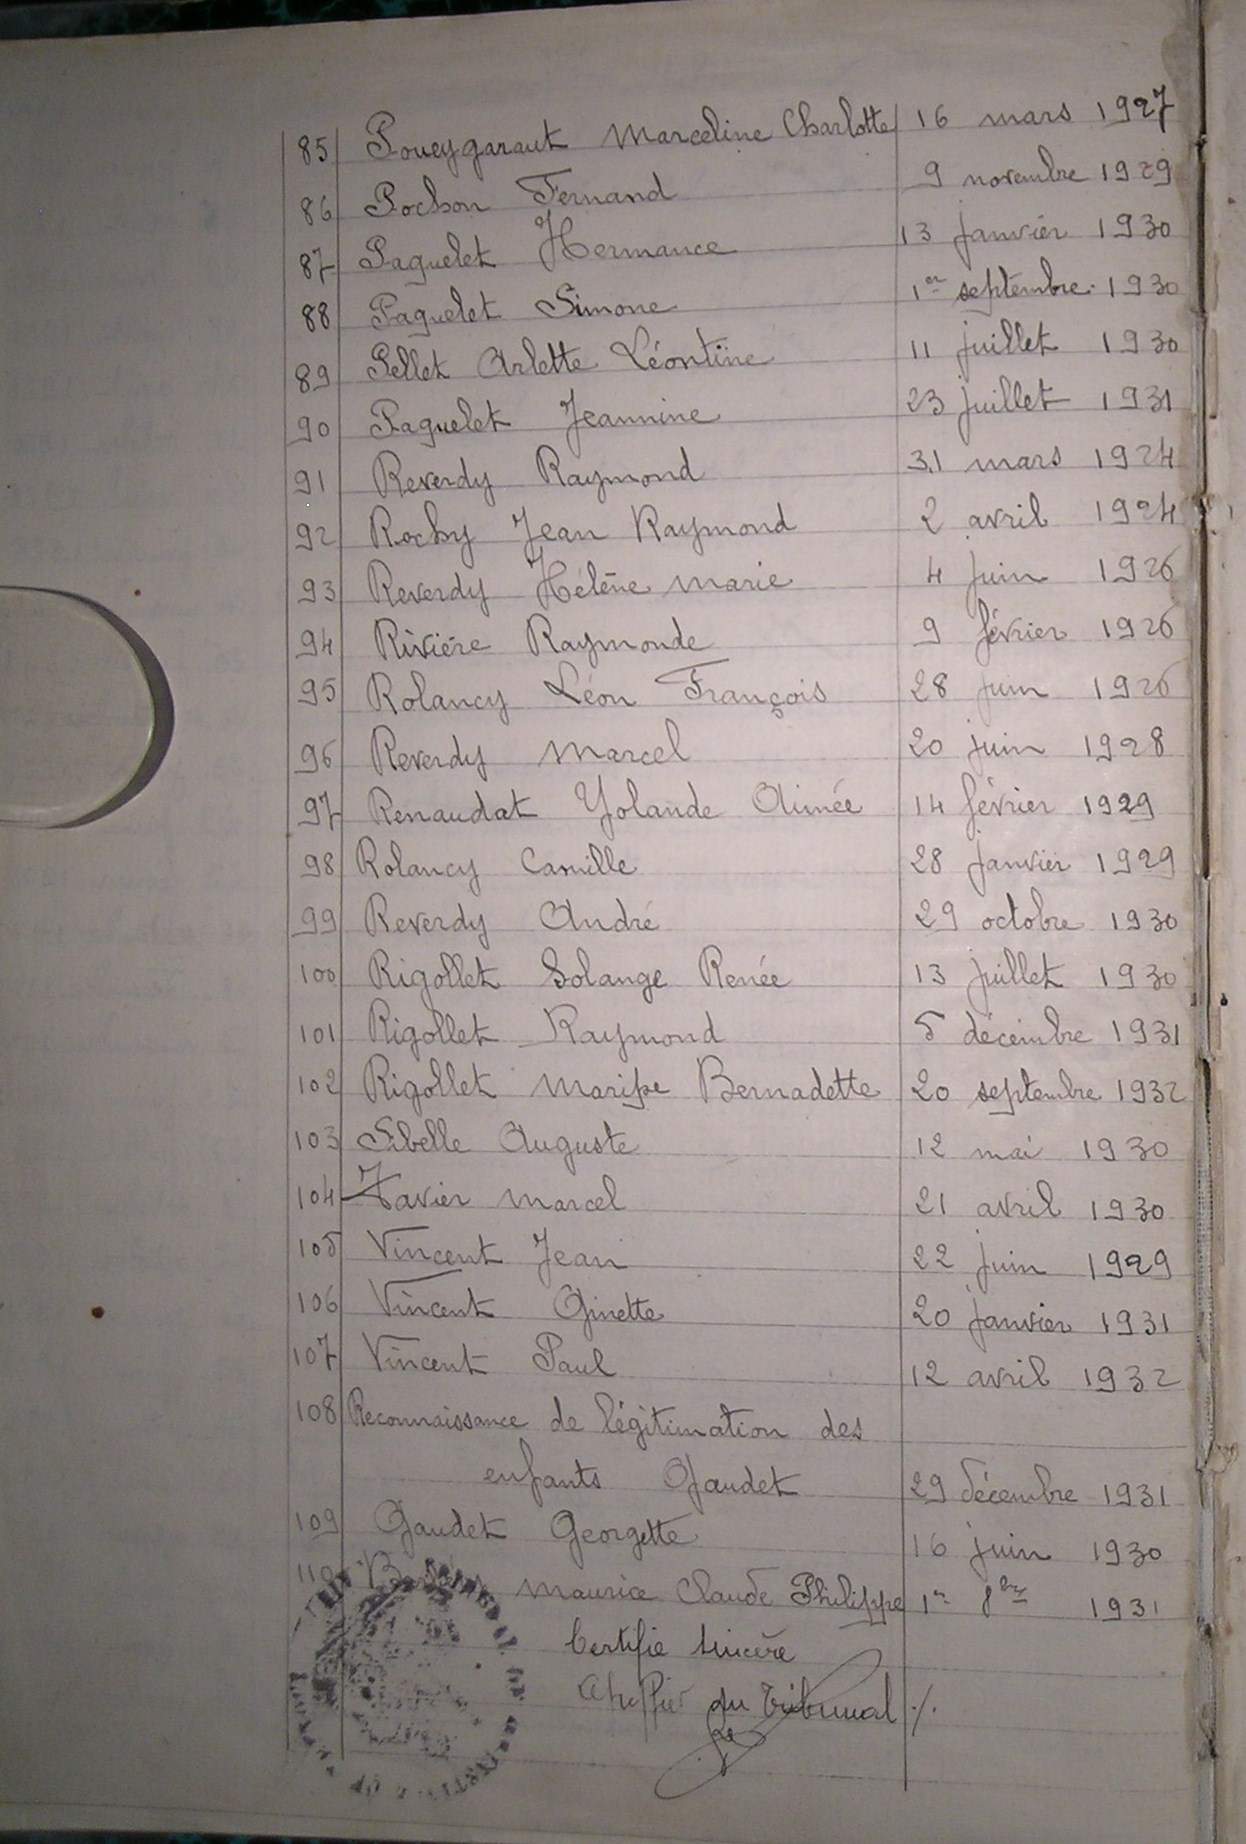 85 Poueygaraut Marceline Charlotte 16 mars 1927
86 Pochon Fernand 9 novembre 1929
87 Paguelet Hermance 13 janvier 1930
88 Paguelet Simone 1er septembre 1930
89 Pellet Arlette Léontine 11 juillet 1930
90 Paguelet Jeannine 23 juillet 1931
91 Reverdy Raymond 31 mars 1924
92 Rochy Jean Raymond 2 avril 1924
93 Reverdy Hélène Marie 4 juin 1926
94 Rivière Raymonde 9 février 1926
95 Rolancy Léon François 28 juin 1926
96 Reverdy Marcel 20 juin 1928
97 Renaudat Yolande Aimée 14 février 1929
98 Rolancy Camille 28 janvier 1929
99 Reverdy André 29 octobre 1930
100 Rigollet Solange Renée 13 juillet 1930
101 Rigollet Raymond 5 décembre 1931
102 Rigollet Marisse Bernadette 20 septembre 1932
103 Sibelle Auguste 12 mai 1930
104 Xavier Marcel 21 avril 1930
105 Vincent Jean 22 juin 1929
106 Vincent Ginette 20 janvier 1931
107 Vincent Paul 12 avril 1932
108 Reconnaissance de légitimation des
enfants Gaudet 29 décembre 1931
109 Gaudet Georgette 16 juin 1930
110 Maurice Claude Philippe 1er 8bre 1931
Certifié sincère
du Tribunal